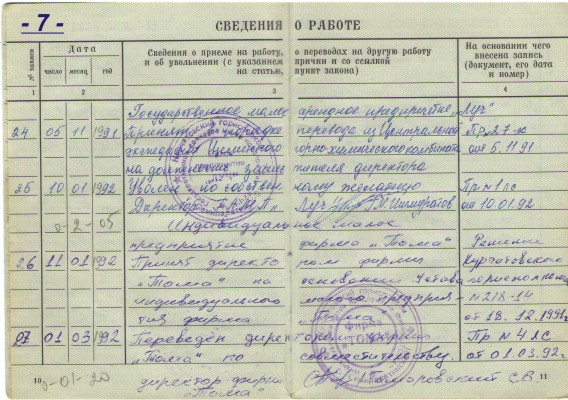 - 7 -
СВЕДЕНИЯ О РАБОТЕ
№ записи
Дата
Сведения о приеме на работу, о переводах на другую работу
и об увольнении (с указанием причин и со ссылкой
на статью, пункт закона)
На основании чего
внесена запись
(документ, его дата
и номер)
число месяц год
1 2 3 4
Государственное малое арендное предприятие „Луч"
24 05 11 1991 Принят в порядке перевода из Центральной Пр 27-к
экспедиции горно-химического комбината от 5.11.91
на должность заместителя директора
25 10 01 1992 Уволен по собственному желанию Пр №1лс
Директор ГАМП „Луч" от 10.01.92
0-2-05
Индивидуальное малое
предприятие фирма „Тома" Решение
26 11 01 1992 Принят директором фирмы Курчатовского
„Тома" на основании Устава горисполкома
индивидуального малого предприя- №218-14
тия фирма „Тома" от 18.12.1991г
27 01 03 1992 Переведён директором фирмы Пр №4лс
„Тома" по совместительству. от 01.03.92г.
10
-01-20
директор фирмы
„Тома"
11